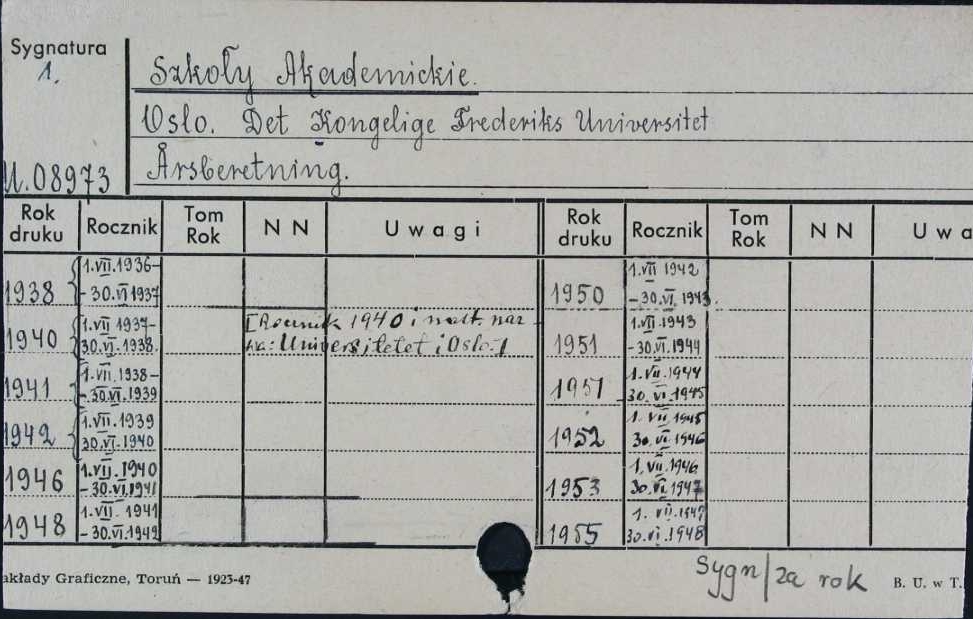 Sygnatura
1.
Szkoły Akademickie.
Oslo. Det Kongelige Frederiks Universitet
U.08973
Årsberetning.
Rok druku Rocznik Tom Rok N N Uwagi Rok druku Rocznik Tom Rok N N Uwa
1938 1.VII.1936- -30.VI.1937
1940 1.VII.1937- 30.VI.1938. [Rocznik 1940 i nast. nazwa: Universitetet i Oslo.]
1941 1.VII.1938- -30.VI.1939
1942 1.VII.1939 30.VI.1940
1946 1.VII.1940 -30.VI.1941
1948 1.VII.1941 -30.VI.1942
1950 1.VII 1942 -30.VI.1943.
1951 1.VII.1943 -30.VI.1944
1951 1.VII.1944 30.VI.1945
1952 1.VII.1945 30.VI.1946
1953 1.VII.1946 30.VI.1947
1955 1.VII.1947 30.VI.1948
akłady Graficzne, Toruń — 1923-47
Sygn/za rok
B. U. w T.